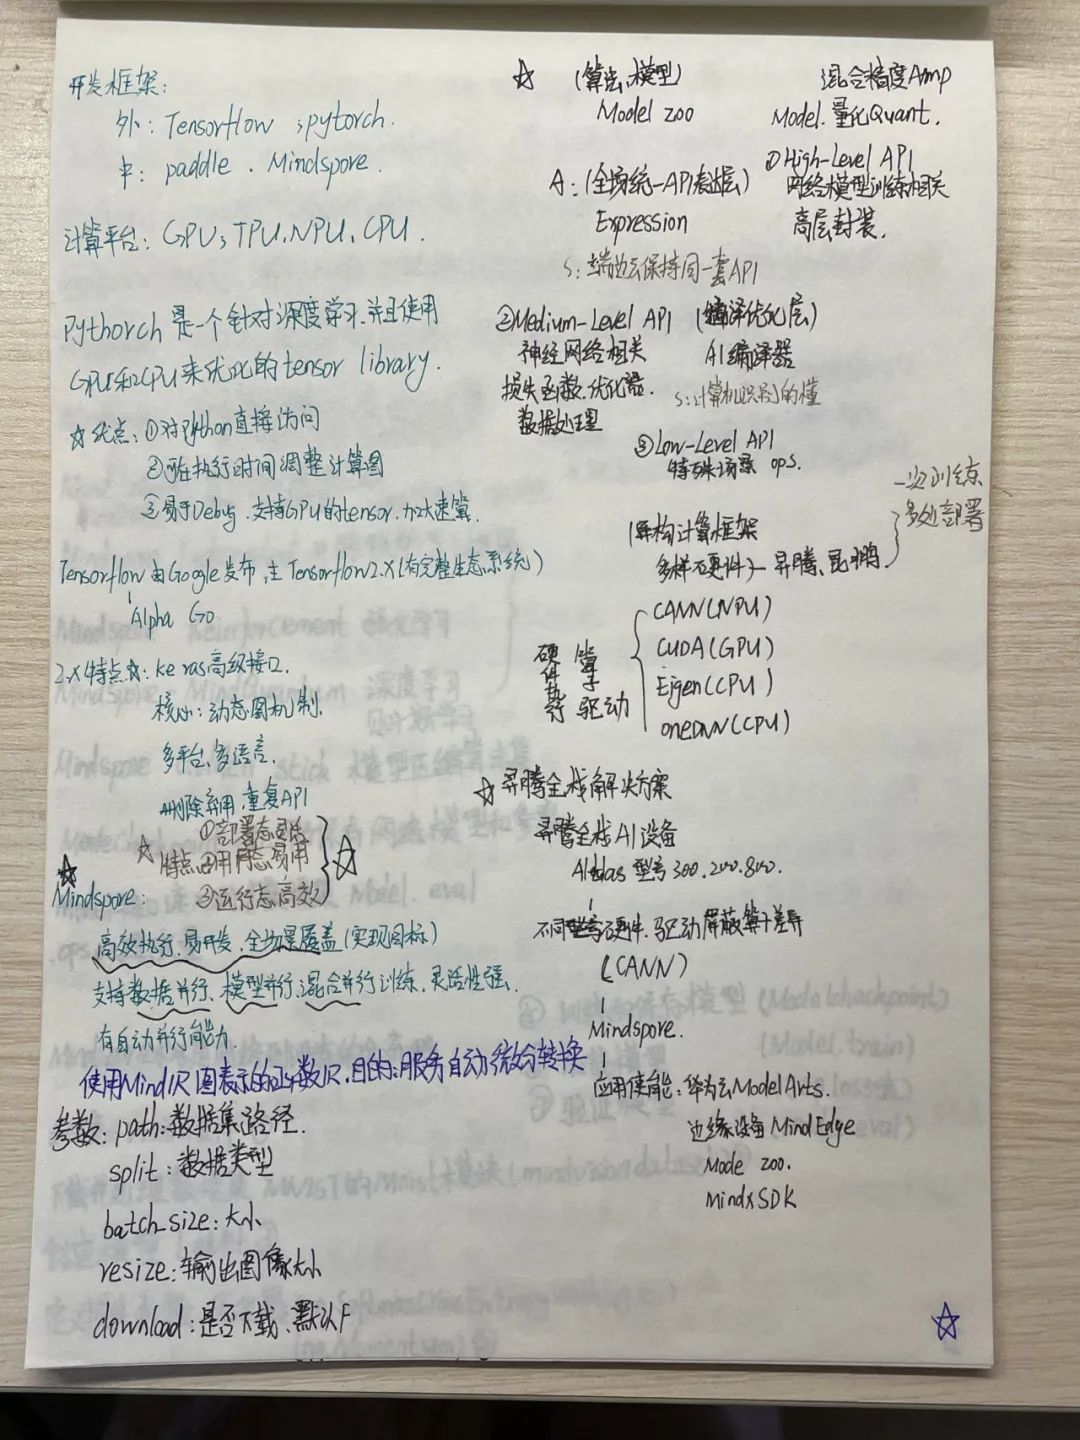 开发框架:
外: Tensorflow ; pytorch.
中: paddle . Mindspore.
计算平台: GPU; TPU. NPU. CPU.
Pythorch 是一个针对深度学习.并且使用
GPU和CPU来优化的tensor library.
☆优点: ①对Python直接访问
②可在执行时间调整计算图
③易于Debug. 支持GPU的tensor. 加大速算.
Tensorflow 由Google发布, 主 Tensorflow2.X (有完整生态系统)
Alpha Go
2.X特点☆: Keras高级接口.
核心: 动态图机制.
多平台.多语言.
删除弃用.重复API
①部署态灵活
☆特点②用户态易用
③运行态高效 ☆
☆
Mindspore:
高效执行.易开发.全场景覆盖(实现目标)
支持数据并行.模型并行.混合并行训练.灵活性强.
有自动并行能力.
使用MindIR图表示的函数IR.目的:服务自动微分转换
参数: path:数据集路径.
split: 数据类型
batch_size: 大小
resize: 输出图像大小
download: 是否下载.默认F
☆ (算法.模型)
Model zoo
混合精度Amp
Model. 量化Quant.
A: (全场统一API表达层)
Expression
①High-Level API
网络模型训练相关
高层封装.
S: 端边云保持同一套API
②Medium-Level API
神经网络相关
损失函数.优化器.
数据处理
(编译优化层)
AI编译器
S: 计算机识别的懂
③Low-Level API
特殊场景 ops.
一次训练
多处部署
(异构计算框架
多样石更件)— 昇腾、昆鹏
硬件执行
算子
驱动
CANN(NPU)
CUDA(GPU)
Eigen(CPU)
oneDNN(CPU)
☆昇腾全栈解决方案
昇腾全栈AI设备
Atldas 型号300.200.800.
不同型号硬件.驱动屏蔽算子差异
(CANN)
Mindspore.
应用使能: 华为云ModelArts.
边缘设备MindEdge
Mode zoo.
MindXSDK
☆